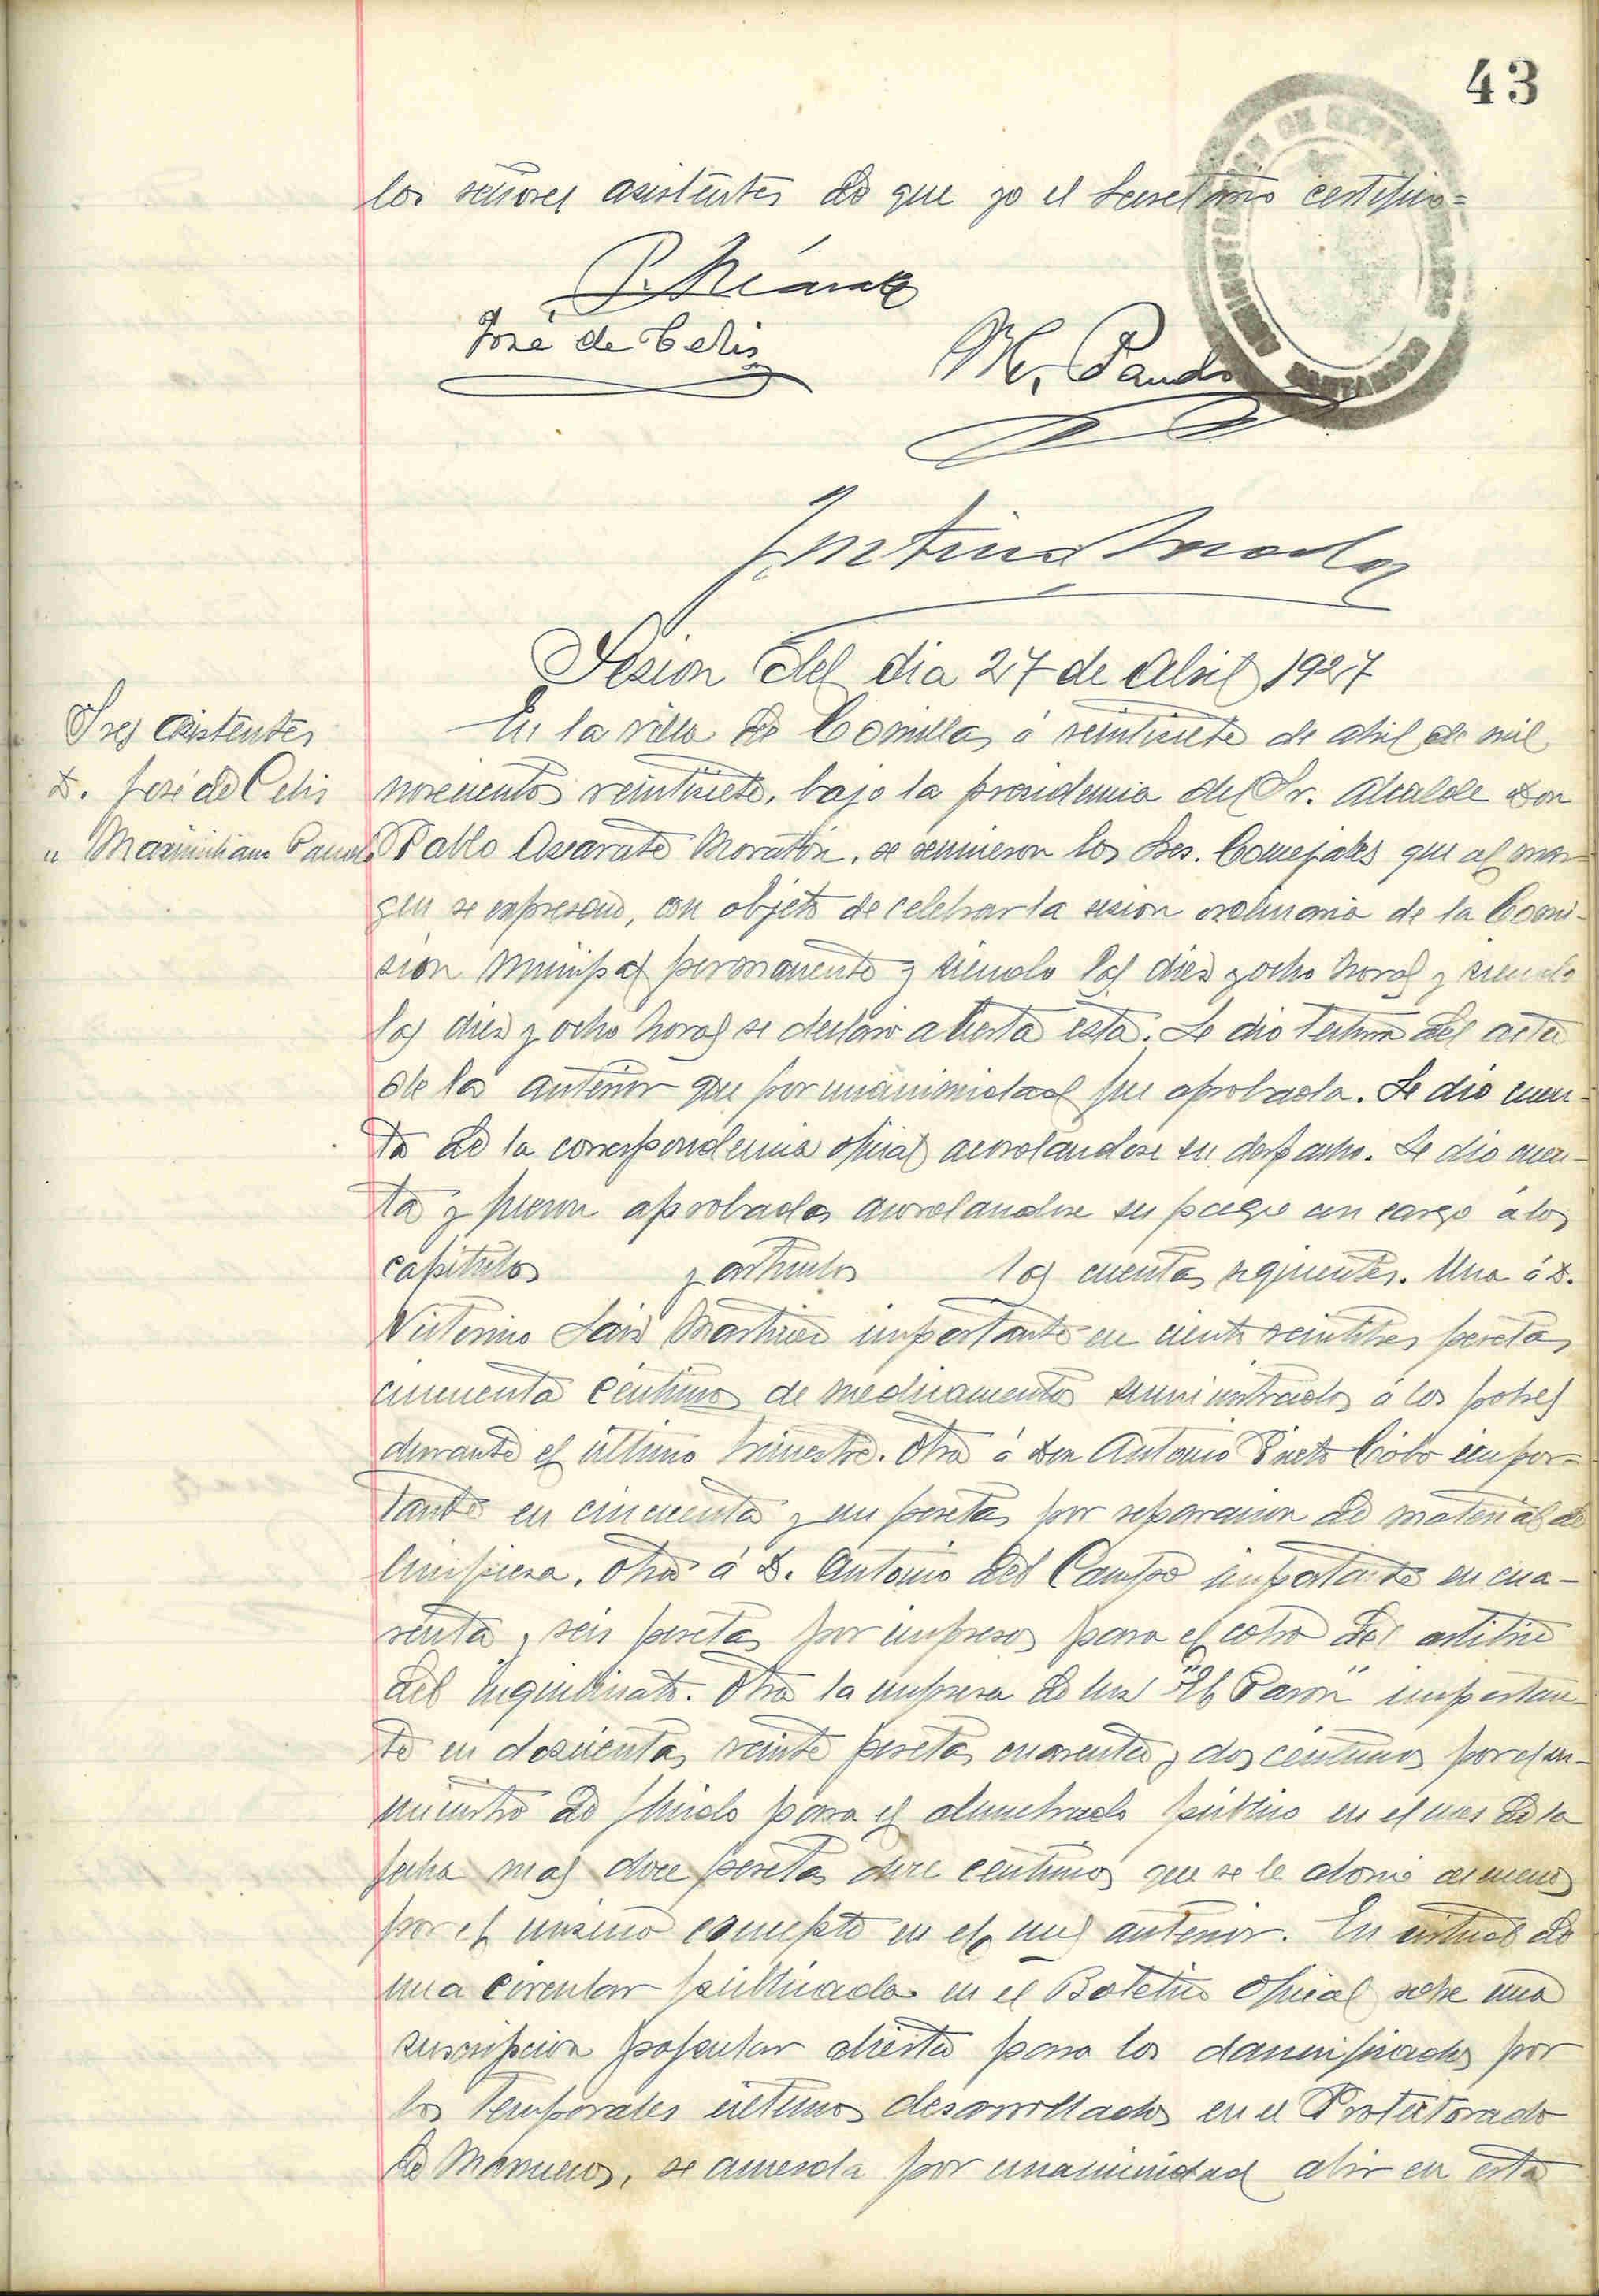 43
los señores asistentes de que yo el Secretario certifico=
José de Celis
M. Pando
Sesion del dia 27 de Abril 1927
Sres asistentes
D. José de Celis
" Maximiliano Pando
En la villa de Comillas á veintisiete de abril de mil
novecientos veintisiete, bajo la presidencia del Sr. Alcalde Don
Pablo Azcarate Moratón, se reunieron los Sres. Concejales que al mar-
gen se expresan, con objeto de celebrar la sesion ordinaria de la Comi-
sion Municipal permanente y siendo las diez y ocho horas y siendo
las diez y ocho horas se declaro abierta esta. Se dio lectura del acta
de la anterior que por unanimidad fue aprobada. Se dio cuen-
ta de la correspondencia oficial acordandose su despacho. Se dio cuen-
ta y fueron aprobadas acordandose su pago con cargo á los
capitulos y articulos las cuentas siguientes. Una á D.
Victorino Saiz Martinez importante en ciento veintitres pesetas
cincuenta céntimos de medicamentos suministrados á los pobres
durante el último trimestre. Otra á Don Antonio Prieto Cobo impor-
tante en cincuenta y un pesetas por reparacion de material de
limpieza. Otra á D. Antonio del Campo importante en cua-
renta y seis pesetas por impresos para el cobro del arbitrio
del inquilinato. Otra la empresa de luz "El Pason" importan-
te en doscientas veinte pesetas cuarenta y dos centimos por el su-
ministro de fluido para el alumbrado público en el mes de la
fecha mas doce pesetas doce centimos que se le abonó de menos
por el mismo concepto en el mes anterior. En virtud de
una circular publicada en el Boletin Oficial sobre una
suscripcion popular abierta para los damnificados por
los temporales ultimos desarrollados en el Protectorado
de Marruecos, se acuerda por unanimidad abrir en esta